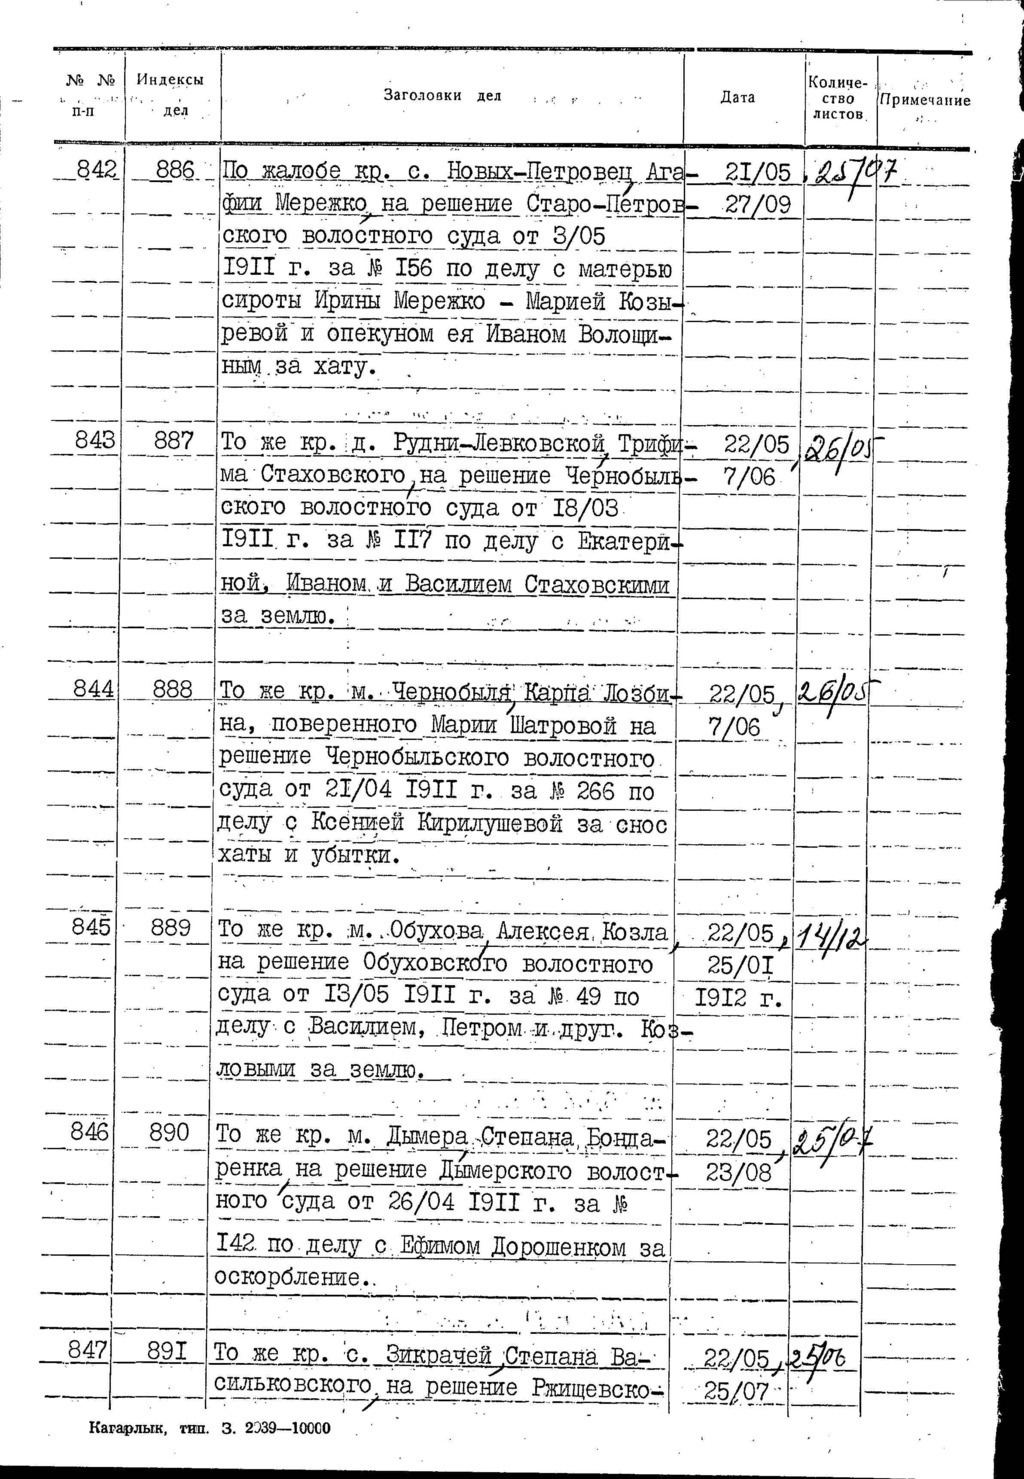 № №
п-п
Индексы
дел
Заголовки дел
Дата
Количе-
ство
листов
Примечание
842 886 По жалобе кр. с. Новых-Петровец Ага- 21/05, 25/07
фии Мережко, на решение Старо-Петров- 27/09
ского волостного суда от 3/05
1911 г. за № 156 по делу с матерью
сироты Ирины Мережко - Марией Козы-
ревой и опекуном ея Иваном Волощи-
ным за хату.
843 887 То же кр. д. Рудни-Левковской, Трифи- 22/05, 26/05
ма Стаховского, на решение Чернобыль- 7/06
ского волостного суда от 18/03
1911 г. за № 117 по делу с Екатери-
ной, Иваном и Василием Стаховскими
за землю.
844 888 То же кр. м. Чернобыля, Карпа Лозби- 22/05, 26/05
на, поверенного Марии Шатровой на 7/06
решение Чернобыльского волостного
суда от 21/04 1911 г. за № 266 по
делу с Ксенией Кирилушевой за снос
хаты и убытки.
845 889 То же кр. м. Обухова, Алексея Козла, 22/05, 14/12
на решение Обуховского волостного 25/01
суда от 13/05 1911 г. за № 49 по 1912 г.
делу с Василием, Петром и друг. Коз-
ловыми за землю.
846 890 То же кр. м. Дымера, Степана Бонда- 22/05, 25/07
ренка, на решение Дымерского волост- 23/08
ного суда от 26/04 1911 г. за №
142 по делу с Ефимом Дорошенком за
оскорбление.
847 891 То же кр. с. Зикрачей, Степана Ва- 22/05, 25/06
сильковского, на решение Ржищевско- 25/07
Кагарлык, тип. З. 2939—10000